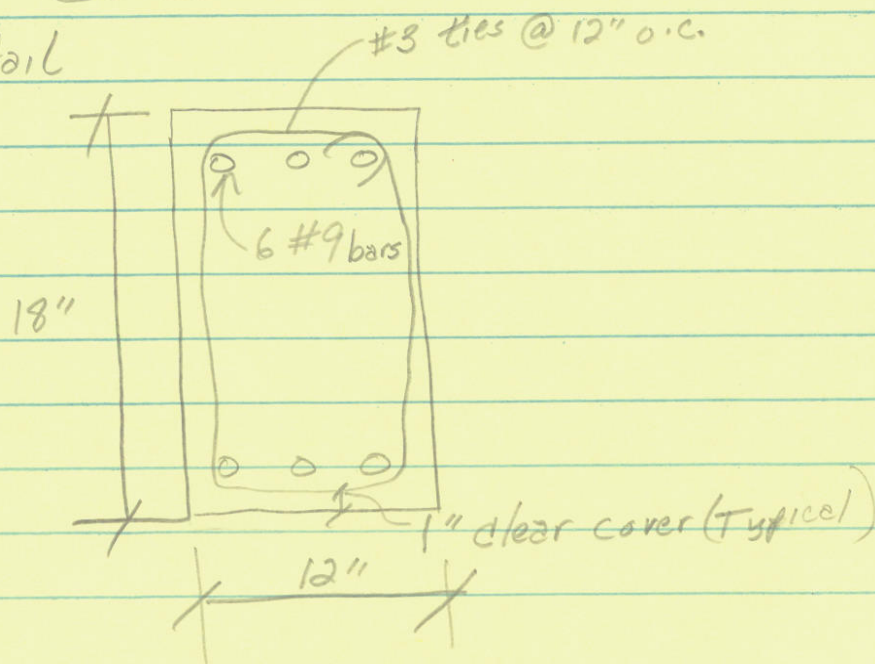 #3 ties @ 12" o.c.
6 #9 bars
18"
1" clear cover (Typical)
12"